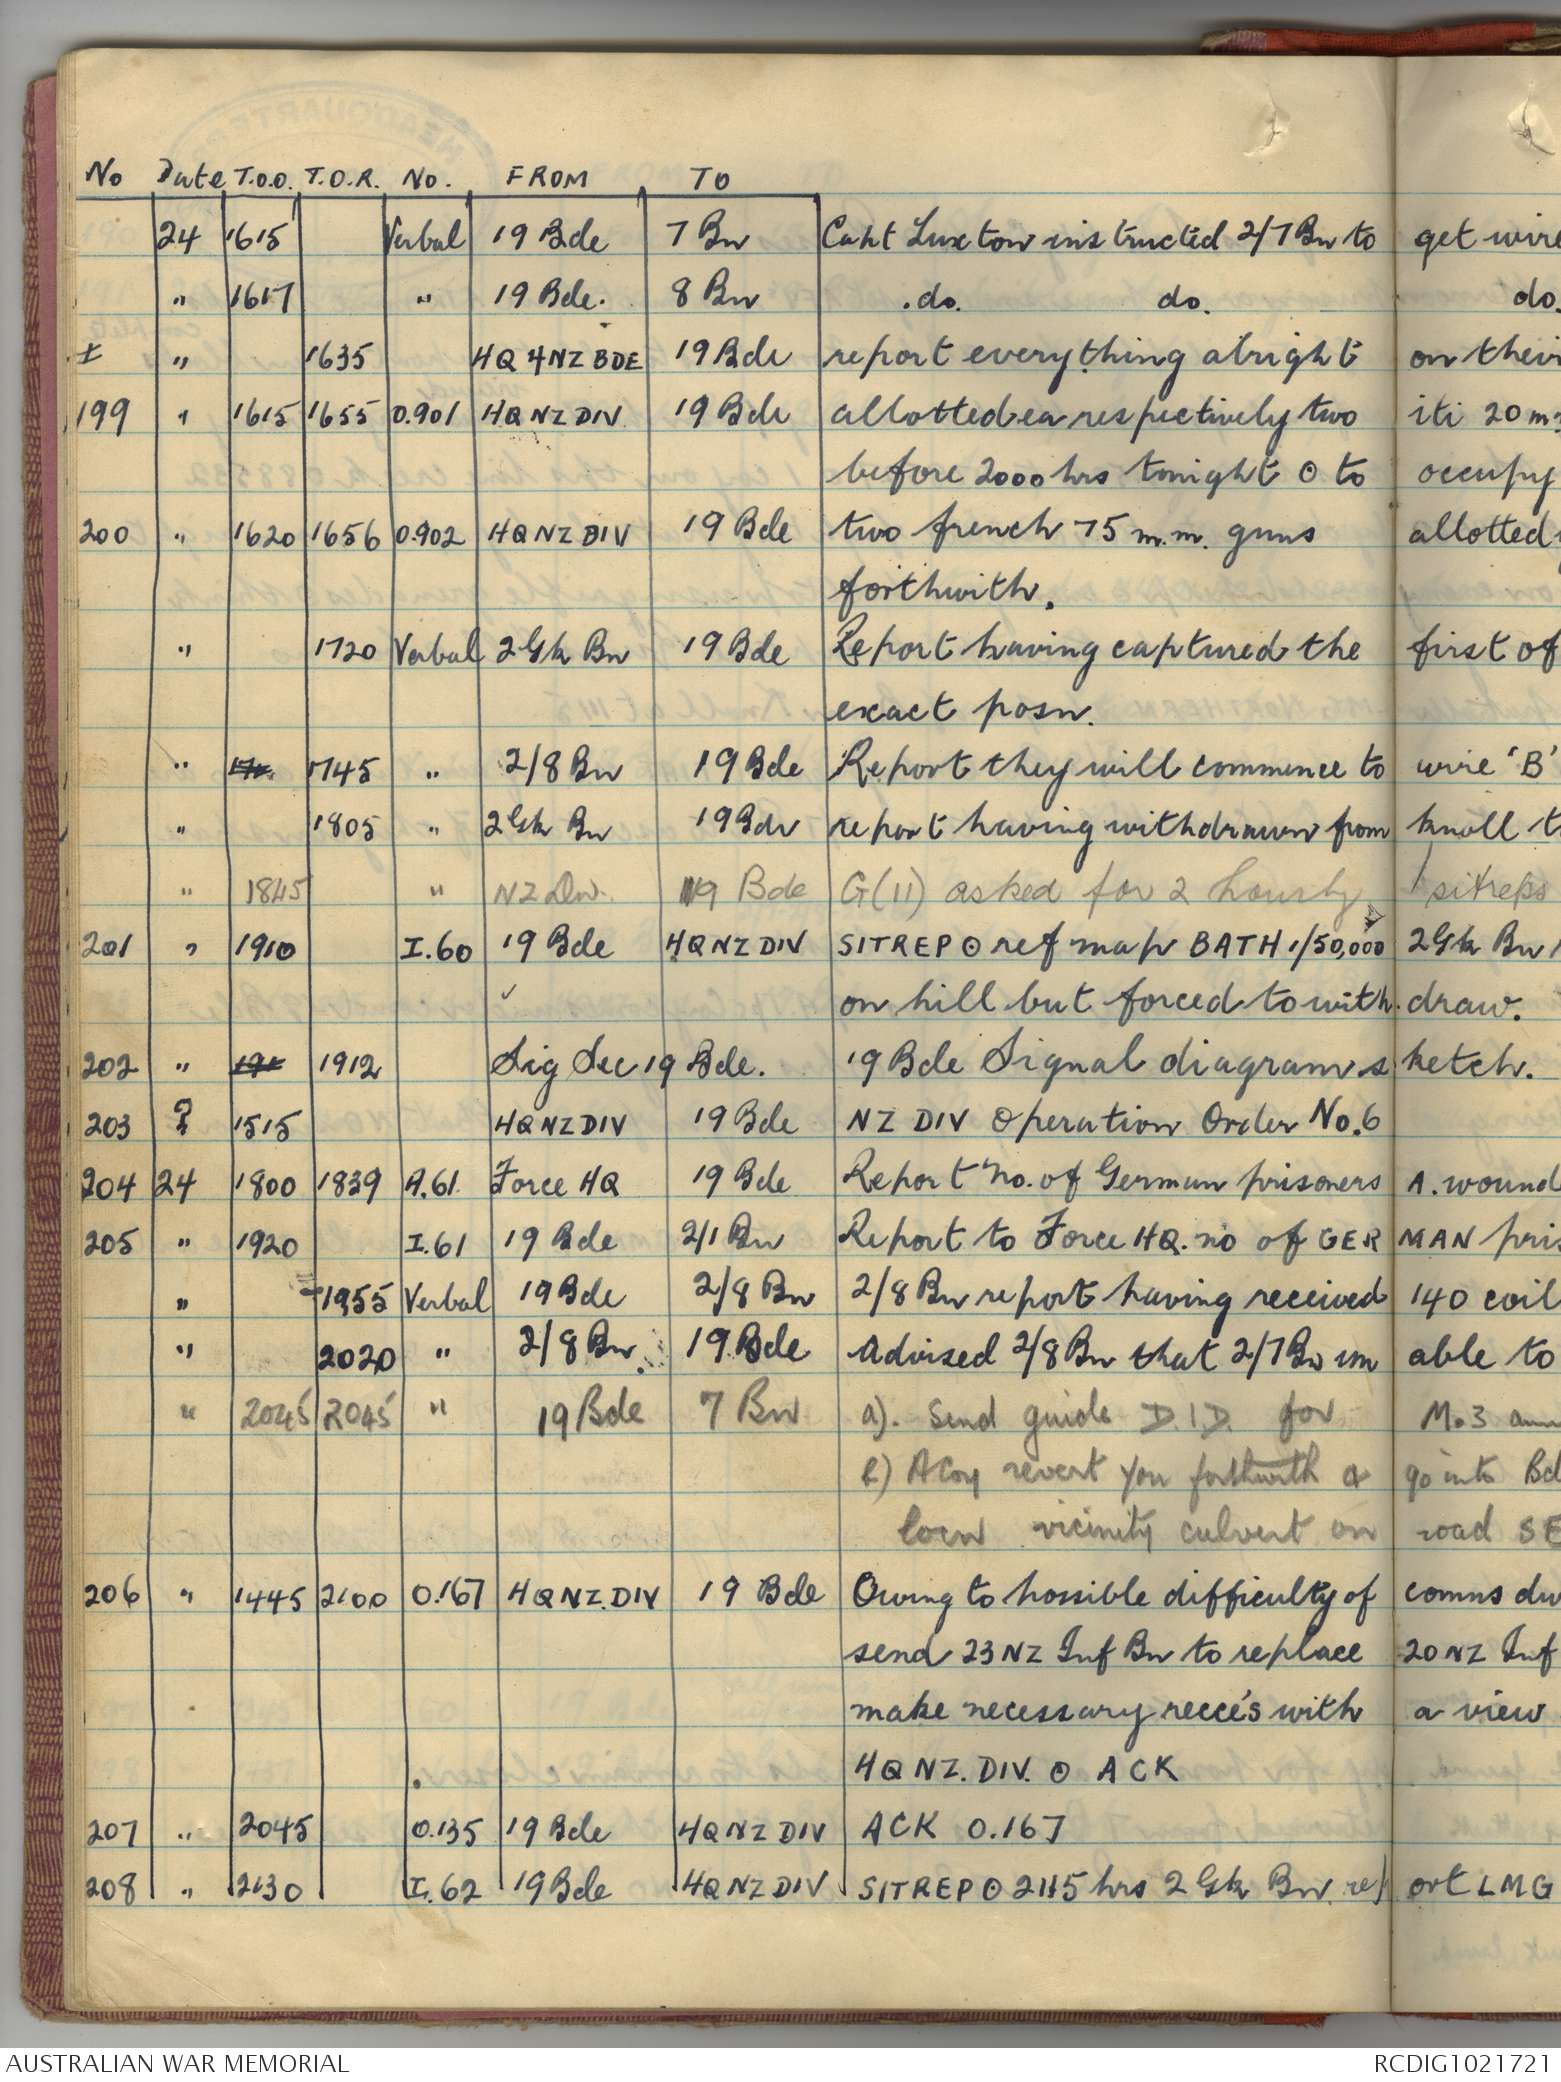 No Date T.O.O. T.O.R. No. FROM TO
24 1615 Verbal 19 Bde 7 Bn Capt Luxton instructed 2/7 Bn to get wire
" 1617 " 19 Bde. 8 Bn .do. do. do.
I " 1635 HQ 4NZ BDE 19 Bde report everything alright on their
199 " 1615 1655 0.901 HQ NZ DIV 19 Bde allotted ea respectively two iti 20 m
before 2000 hrs tonight ⊙ to occupy
200 " 1620 1656 0.902 HQ NZ DIV 19 Bde two french 75 m.m. guns allotted
forthwith.
" 1720 Verbal 2 Gk Bn 19 Bde Report having captured the first of
exact posn.
" 1745 " 2/8 Bn 19 Bde Report they will commence to wire 'B'
" 1805 " 2 Gk Bn 19 Bde report having withdrawn from knoll t
" 1845 " NZ Div. 19 Bde G(11) asked for 2 hourly sitreps
201 " 1910 I.60 19 Bde HQ NZ DIV SITREP ⊙ ref map BATH 1/50,000 2 Gk Bn
on hill but forced to with draw.
202 " 1912 Sig Sec 19 Bde. 19 Bde Signal diagram s ketch.
203 ? 1515 HQ NZ DIV 19 Bde NZ DIV Operation Order No. 6
204 24 1800 1839 A.61 Force HQ 19 Bde Report no. of German prisoners A. wound
205 " 1920 I.61 19 Bde 2/1 Bn Report to Force HQ. no of GER MAN pris
" 1955 Verbal 19 Bde 2/8 Bn 2/8 Bn report having received 140 coil
" 2020 " 2/8 Bn. 19 Bde Advised 2/8 Bn that 2/7 Bn un able to
" 2045 2045 " 19 Bde 7 Bn a). Send guide D.I.D. for M.3
A Coy revert you forthwith & go into Bd
locn vicinity culvert on road SE
206 " 1445 2100 0.167 HQ NZ. DIV 19 Bde Owing to possible difficulty of comns du
send 23 NZ Inf Bn to replace 20 NZ Inf
make necessary recce's with a view
HQ NZ. DIV. ⊙ ACK
207 " 2045 0.135 19 Bde HQ NZ DIV ACK 0.167
208 " 2130 I.62 19 Bde HQ NZ DIV SITREP ⊙ 2115 hrs 2 Gk Bn rep ort LMG
AUSTRALIAN WAR MEMORIAL RCDIG1021721